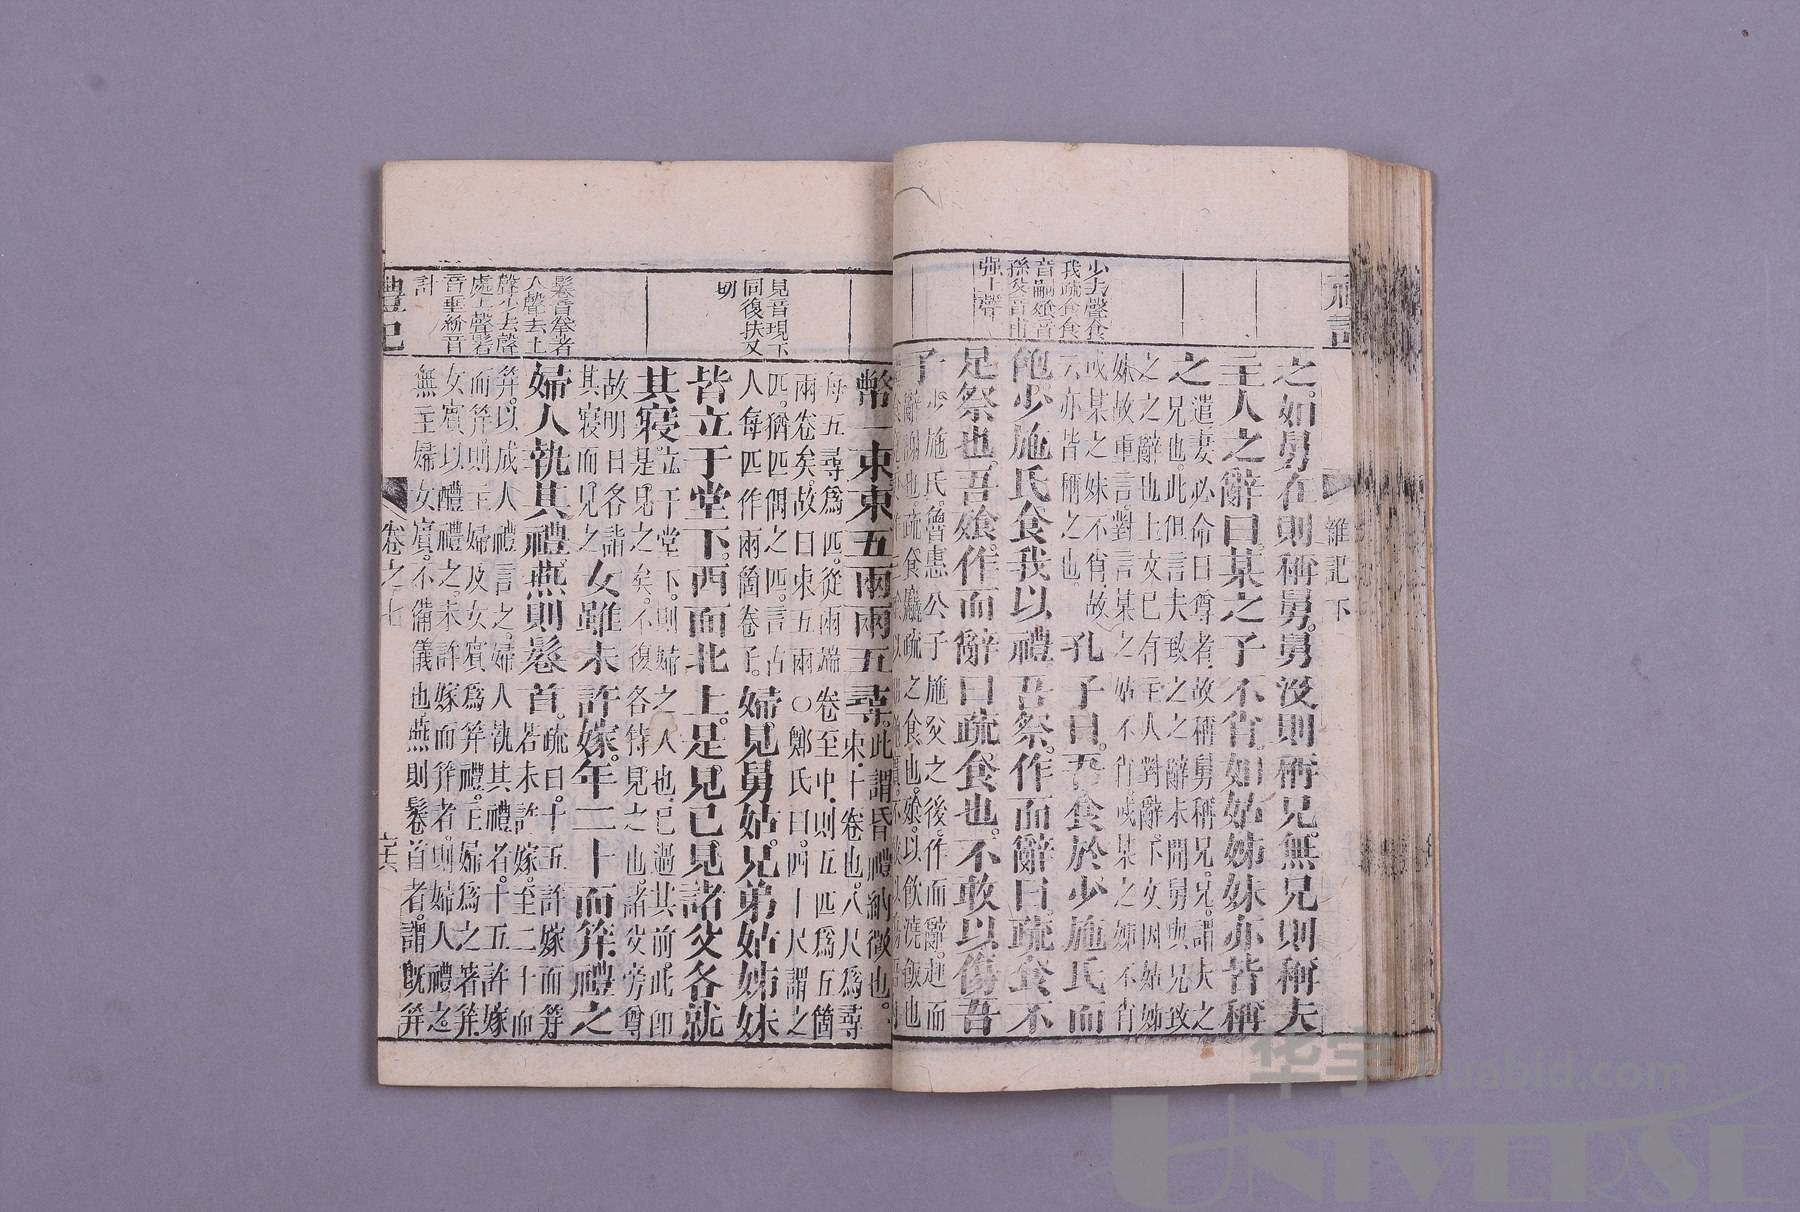 禮記
雜記下
少去聲食
我疏食食
音嗣飧音
孫父音甫
强上聲
之。如舅在則稱舅。舅沒則稱兄。無兄則稱夫
主人之辭曰。某之子不肖。如姑姊妹。亦皆稱
之遣妻必命曰尊者。故稱舅稱兄。兄謂夫之
之兄也。此但言夫致之之辭未聞舅與兄致
之之辭也上文已有主人對辭。下文因姑姊
妹故重言。對言某之姑不肖或某之姊不肖
或某之妹不肖故
云亦皆稱之也
孔子曰。吾食於少施氏而
飽少施氏食我以禮吾祭。作而辭曰。疏食不
足祭也。吾飧。作而辭曰疏食也。不敢以傷吾
子少施氏。魯惠公子施父之後。作而辭。起而
辭謝也疏食麤疏之食也。飧以飲澆飯也
見音現下
同復扶又
切
鬈音拳者
入聲去上
聲少去聲
處上聲髫
音垂紒音
計
幣一束束五兩兩五尋。此謂昏禮納徵也。
束。十卷也。八尺為尋
每五尋爲匹。從兩端卷至中。則五匹爲五箇
兩卷矣。故曰束五兩〇鄭氏曰。四十尺謂之
匹。猶匹偶之匹。言古
人每匹作兩箇卷子。
婦見舅姑。兄弟姑姊妹
皆立于堂下。西面北上。是見已見諸父各就
其寢。立于堂下。則婦之人也。已過其前。此卽
是見之矣。不復各特見之也諸父旁尊
故明日各詣
其寢而見之
女雖未許嫁。年二十而笄。禮之
婦人執其禮。燕則鬈首。疏曰。十五許嫁而笄
若未許嫁。至二十而
笄。以成人禮言之。婦人執其禮者。十五許嫁
而笄。則主婦及女賓爲笄禮。主婦爲之著笄
女賓以醴禮之。未許嫁而笄者。則婦人禮之
無主婦女賓。不備儀也。燕則鬈首者。謂旣笄
禮記
卷之七
六
华宇 huabid.com
UNIVERSE